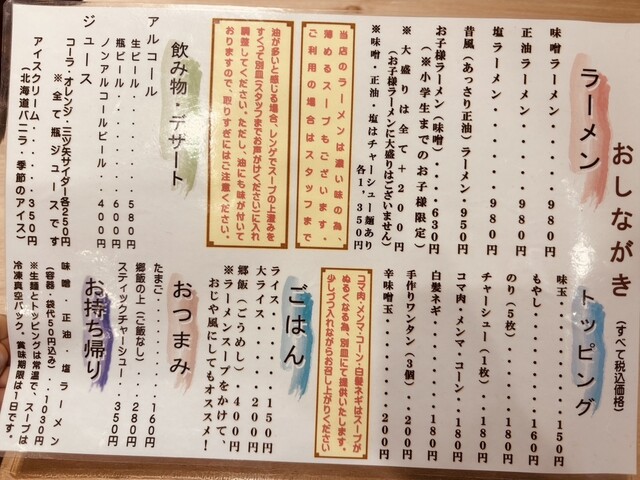 おしながき (すべて税込価格)
ラーメン
味噌ラーメン・・・・・980円
正油ラーメン・・・・・980円
塩ラーメン・・・・・・980円
昔風(あっさり正油)ラーメン・950円
お子様ラーメン(味噌)・・・・630円
(※小学生までのお子様限定)
※大盛りは全て+200円
(お子様ラーメンに大盛りはございません)
※味噌・正油・塩はチャーシュー麺あり
各1,350円
当店のラーメンは濃い味の為、
薄めるスープもございます。
ご利用の場合はスタッフまで
油が多いと感じる場合、レンゲでスープの上澄みを
すくって別皿(スタッフまでお声がけください)に入れ
調整してください。ただし、油にも味が付いて
おりますので、取りすぎにはご注意ください。
飲み物・デザート
アルコール
生ビール・・・・・580円
瓶ビール・・・・・600円
ノンアルコールビール・・400円
ジュース
コーラ・オレンジ・三ツ矢サイダー各250円
※全て瓶ジュースです
アイスクリーム・・・・・350円
(北海道バニラ・季節のアイス)
トッピング
味玉・・・・・・・・150円
もやし・・・・・・・160円
のり(5枚)・・・・・180円
チャーシュー(1枚)・・180円
コマ肉・メンマ・コーン・180円
白髪ネギ・・・・・・180円
手作りワンタン(3個)・・200円
辛味噌玉・・・・・・200円
コマ肉・メンマ・コーン・白髪ネギはスープが
ぬるくなる為、別皿にて提供いたします。
少しづつ入れながらお召し上がりください
ごはん
ライス・・・・・150円
大ライス・・・・200円
郷飯(ごうめし)400円
※ラーメンスープをかけて、
おじや風にしてもオススメ!
おつまみ
たまご・・・・・・・160円
郷飯の上(ご飯なし)・・280円
スティックチャーシュー・350円
お持ち帰り
味噌・正油・塩ラーメン
(容器・袋代50円込み)・・1030円
※生麺とトッピングは常温で スープは
冷凍真空パック、賞味期限は1日です。